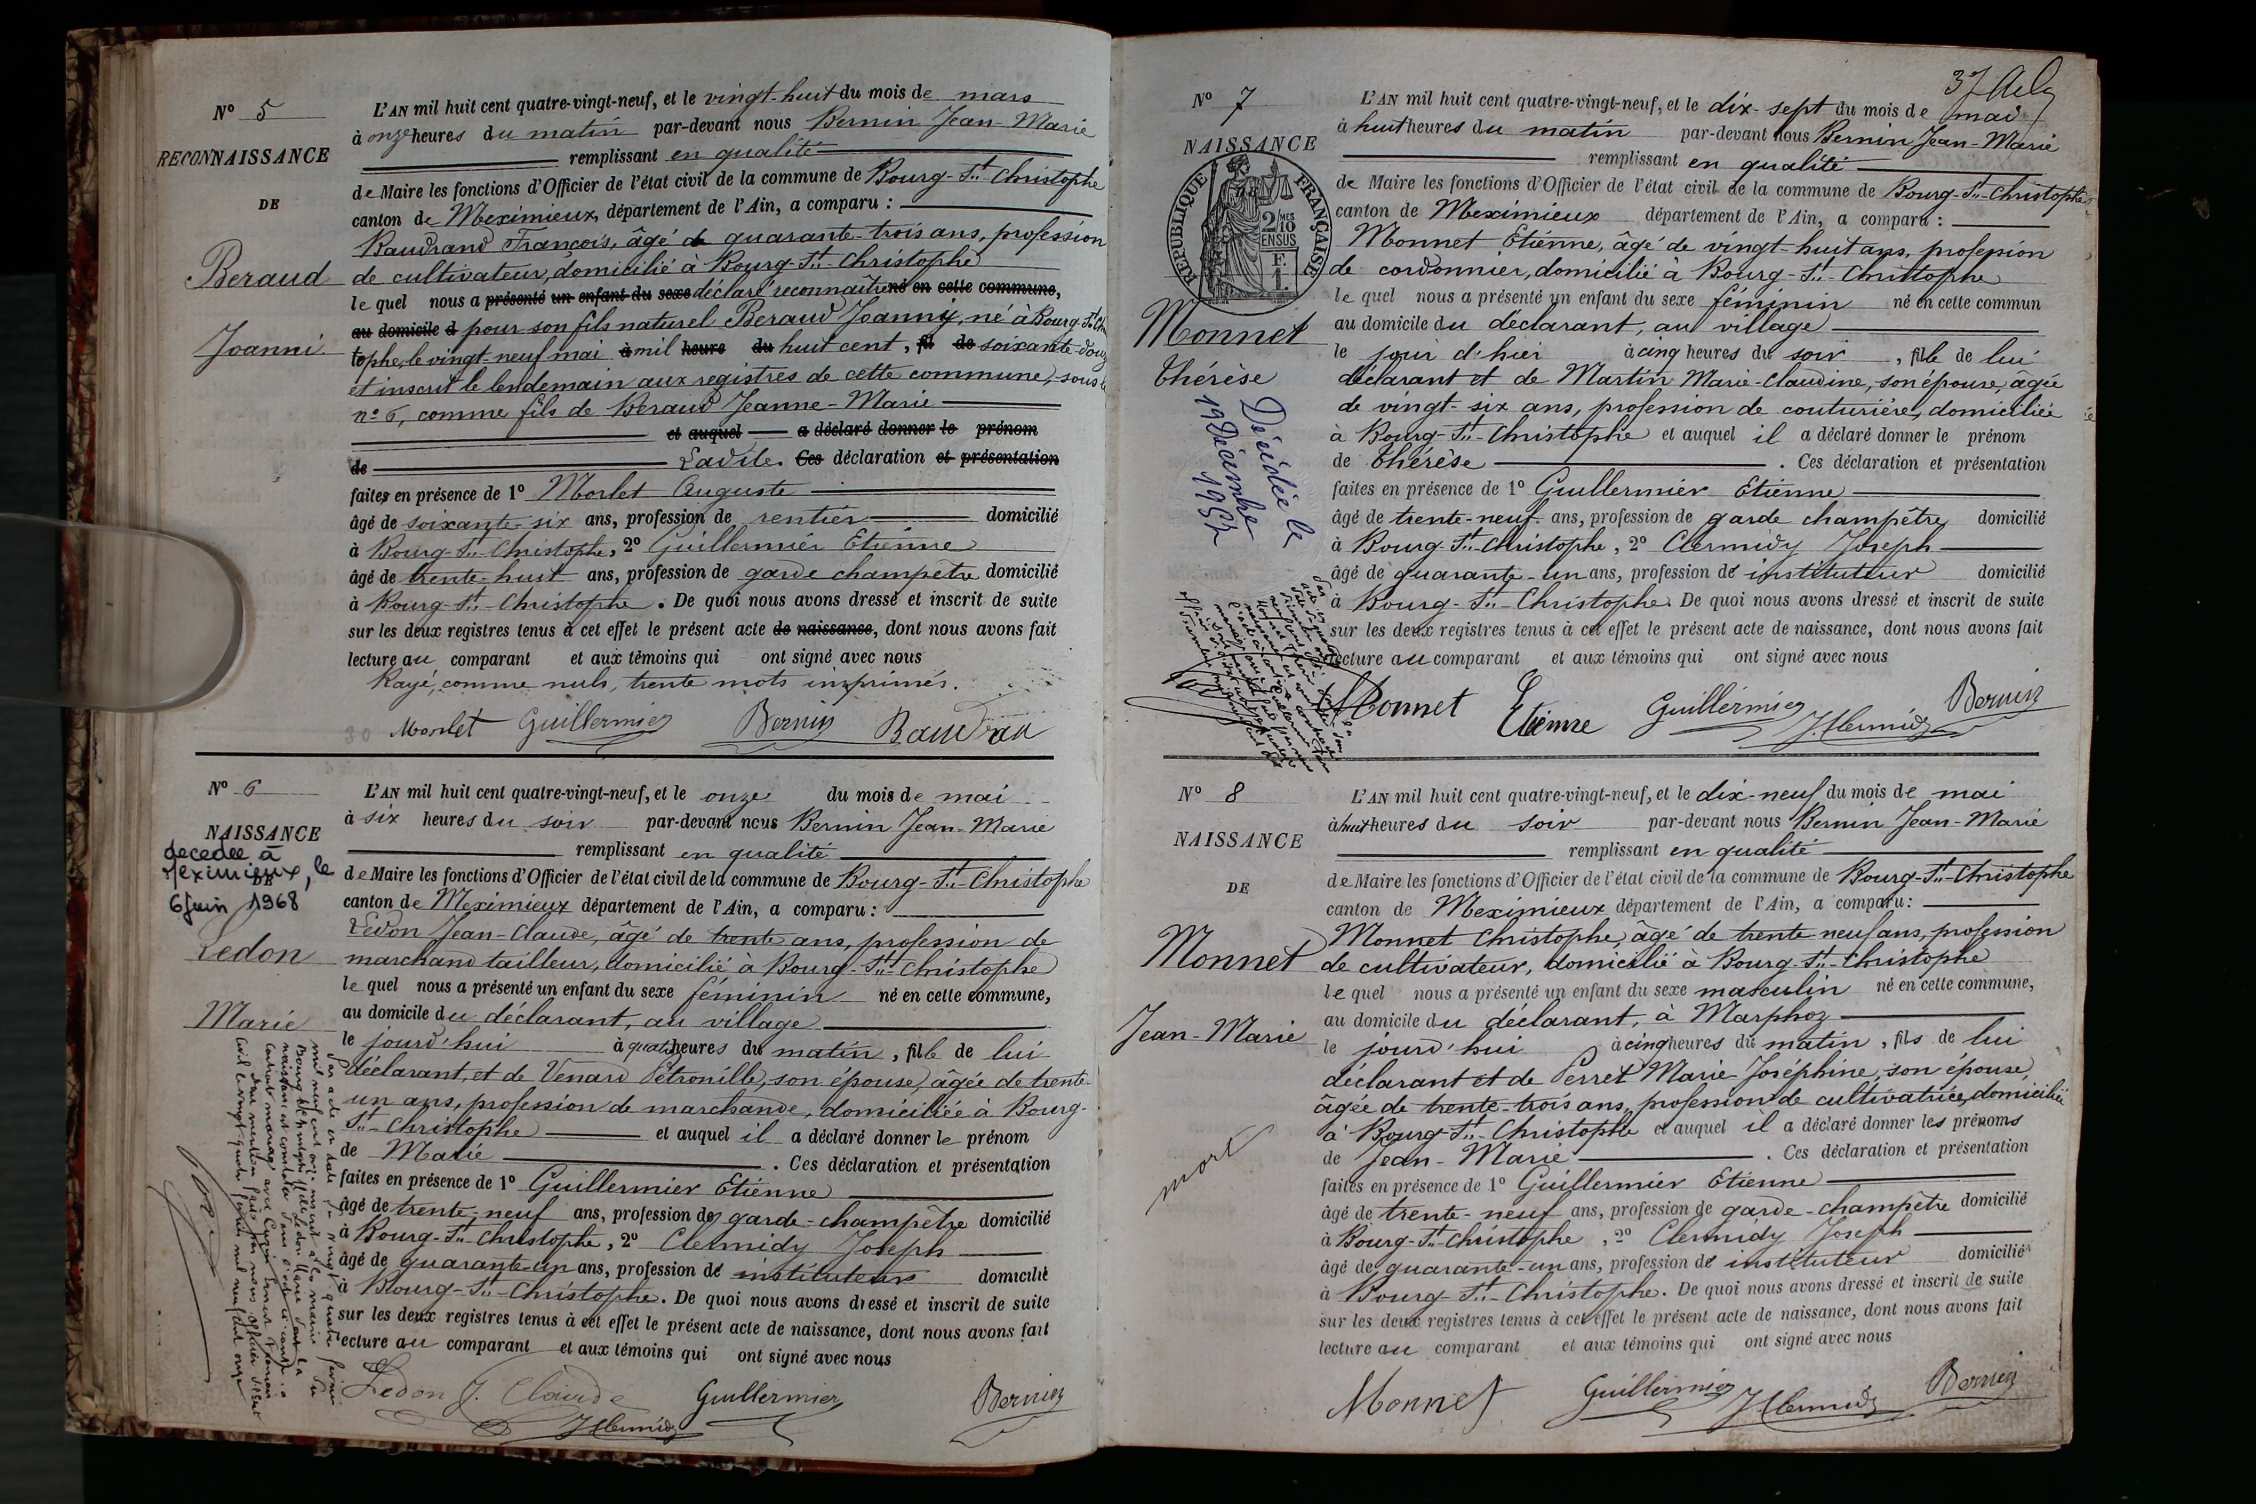 N° 5
RECONNAISSANCE
DE
Beraud
Joanni
L'AN mil huit cent quatre-vingt-neuf, et le vingt-huit du mois de mars
à onze heures du matin par-devant nous Bernin Jean-Marie
remplissant en qualité
de Maire les fonctions d'Officier de l'état civil de la commune de Bourg-St-Christophe
canton de Meximieux, département de l'Ain, a comparu :
Baudrand François, âgé de quarante-trois ans, profession
de cultivateur, domicilié à Bourg-St-Christophe
le quel nous a présenté un enfant du sexe déclaré reconnaître né en cette commune,
au domicile d pour son fils naturel Beraud Joanny, né à Bourg-St-Chris
tophe, le vingt-neuf mai à mil heure du huit cent, fil de soixante-douze
et inscrit le lendemain aux registres de cette commune, sous le
n° 6, comme fils de Beraud Jeanne-Marie
et auquel a déclaré donner le prénom
de Ladite. Ces déclaration et présentation
faites en présence de 1° Morlet Auguste
âgé de soixante-six ans, profession de rentier domicilié
à Bourg-St-Christophe, 2° Guillermier Etienne
âgé de trente-huit ans, profession de garde champêtre domicilié
à Bourg-St-Christophe. De quoi nous avons dressé et inscrit de suite
sur les deux registres tenus à cet effet le présent acte de naissance, dont nous avons fait
lecture au comparant et aux témoins qui ont signé avec nous
Rayé, comme nuls, trente mots imprimés.
30 Morlet Guillermier Bernin Baudran
N° 6
NAISSANCE
DE
décédée à
Meximieux, le
6 Juin 1968
Ledon
Marie
L'AN mil huit cent quatre-vingt-neuf, et le onze du mois de mai
à six heures du soir par-devant nous Bernin Jean-Marie
remplissant en qualité
de Maire les fonctions d'Officier de l'état civil de la commune de Bourg-St-Christophe
canton de Meximieux département de l'Ain, a comparu :
Ledon Jean-Claude, âgé de trente ans, profession de
marchand tailleur, domicilié à Bourg-St-Christophe
le quel nous a présenté un enfant du sexe féminin né en cette commune,
au domicile du déclarant, au village
le jourd'hui à quatre heures du matin, fille de lui
déclarant, et de Venard Pétronille, son épouse, âgée de trente-
un ans, profession de marchande, domiciliée à Bourg-
St-Christophe et auquel il a déclaré donner le prénom
de Marie. Ces déclaration et présentation
faites en présence de 1° Guillermier Etienne
âgé de trente-neuf ans, profession de garde-champêtre domicilié
à Bourg-St-Christophe, 2° Clermidy Joseph
âgé de quarante-un ans, profession de instituteur domicilié
à Bourg-St-Christophe. De quoi nous avons dressé et inscrit de suite
sur les deux registres tenus à cet effet le présent acte de naissance, dont nous avons fait
lecture au comparant et aux témoins qui ont signé avec nous
Ledon J. Claude Guillermier Bernin
J Clermidy
Par acte en date du vingt quatre février
mil neuf cent onze
37
N° 7
NAISSANCE
RÉPUBLIQUE FRANÇAISE
2/10 MES
EN SUS
F.
1.
Monnet
Thérèse
Décédée le
19 Décembre
L'AN mil huit cent quatre-vingt-neuf, et le dix-sept du mois de mai
à huit heures du matin par-devant nous Bernin Jean-Marie
remplissant en qualité
de Maire les fonctions d'Officier de l'état civil de la commune de Bourg-St-Christophe
canton de Meximieux département de l'Ain, a comparu :
Monnet Etienne, âgé de vingt-huit ans, profession
de cordonnier, domicilié à Bourg-St-Christophe
le quel nous a présenté un enfant du sexe féminin né en cette commun
au domicile du déclarant, au village
le jour d'hier à cinq heures du soir, fille de lui
déclarant et de Martin Marie-Claudine, son épouse, âgée
de vingt-six ans, profession de couturière, domiciliée
à Bourg-St-Christophe et auquel il a déclaré donner le prénom
de Thérèse. Ces déclaration et présentation
faites en présence de 1° Guillermier Etienne
âgé de trente-neuf ans, profession de garde champêtre domicilié
à Bourg-St-Christophe, 2° Clermidy Joseph
âgé de quarante-un ans, profession de instituteur domicilié
à Bourg-St-Christophe. De quoi nous avons dressé et inscrit de suite
sur les deux registres tenus à cet effet le présent acte de naissance, dont nous avons fait
lecture au comparant et aux témoins qui ont signé avec nous
Monnet Etienne Guillermier J. Clermidy Bernin
N° 8
NAISSANCE
DE
Monnet
Jean-Marie
mort
L'AN mil huit cent quatre-vingt-neuf, et le dix-neuf du mois de mai
à huit heures du soir par-devant nous Bernin Jean-Marie
remplissant en qualité
de Maire les fonctions d'Officier de l'état civil de la commune de Bourg-St-Christophe
canton de Meximieux département de l'Ain, a comparu :
Monnet Christophe, âgé de trente neuf ans, profession
de cultivateur, domicilié à Bourg-St-Christophe
le quel nous a présenté un enfant du sexe masculin né en cette commune,
au domicile du déclarant, à Marphoz
le jourd'hui à cinq heures du matin, fils de lui
déclarant et de Perret Marie-Joséphine, son épouse,
âgée de trente-trois ans, profession de cultivatrice, domiciliée
à Bourg-St-Christophe et auquel il a déclaré donner les prénoms
de Jean-Marie. Ces déclaration et présentation
faites en présence de 1° Guillermier Etienne
âgé de trente-neuf ans, profession de garde-champêtre domicilié
à Bourg-St-Christophe, 2° Clermidy Joseph
âgé de quarante-un ans, profession de instituteur domicilié
à Bourg-St-Christophe. De quoi nous avons dressé et inscrit de suite
sur les deux registres tenus à cet effet le présent acte de naissance, dont nous avons fait
lecture au comparant et aux témoins qui ont signé avec nous
Monnet Guillermier J. Clermidy Bernin